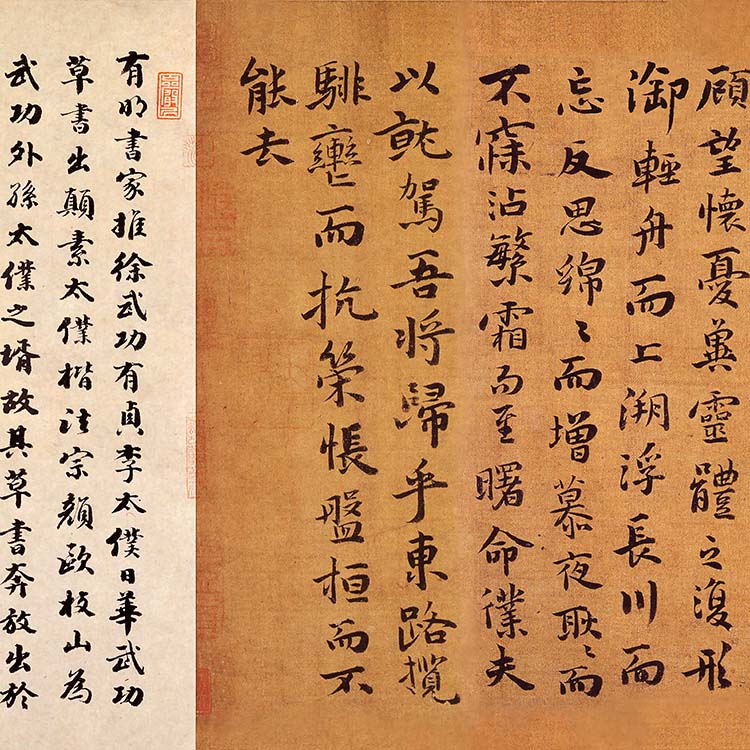 顾望懷憂冀靈體之復形
御輕舟而上溯浮長川而
忘反思綿〻而增慕夜耿〻而
不寐沾繁霜而至曙命僕夫
以就駕吾將歸乎東路攬
騑轡而抗策悵盤桓而不
能去
有明書家推徐武功有貞李太僕日華武功
草書出顛素太僕楷法宗顏歐枝山為
武功外孫太僕之壻故其草書奔放出於